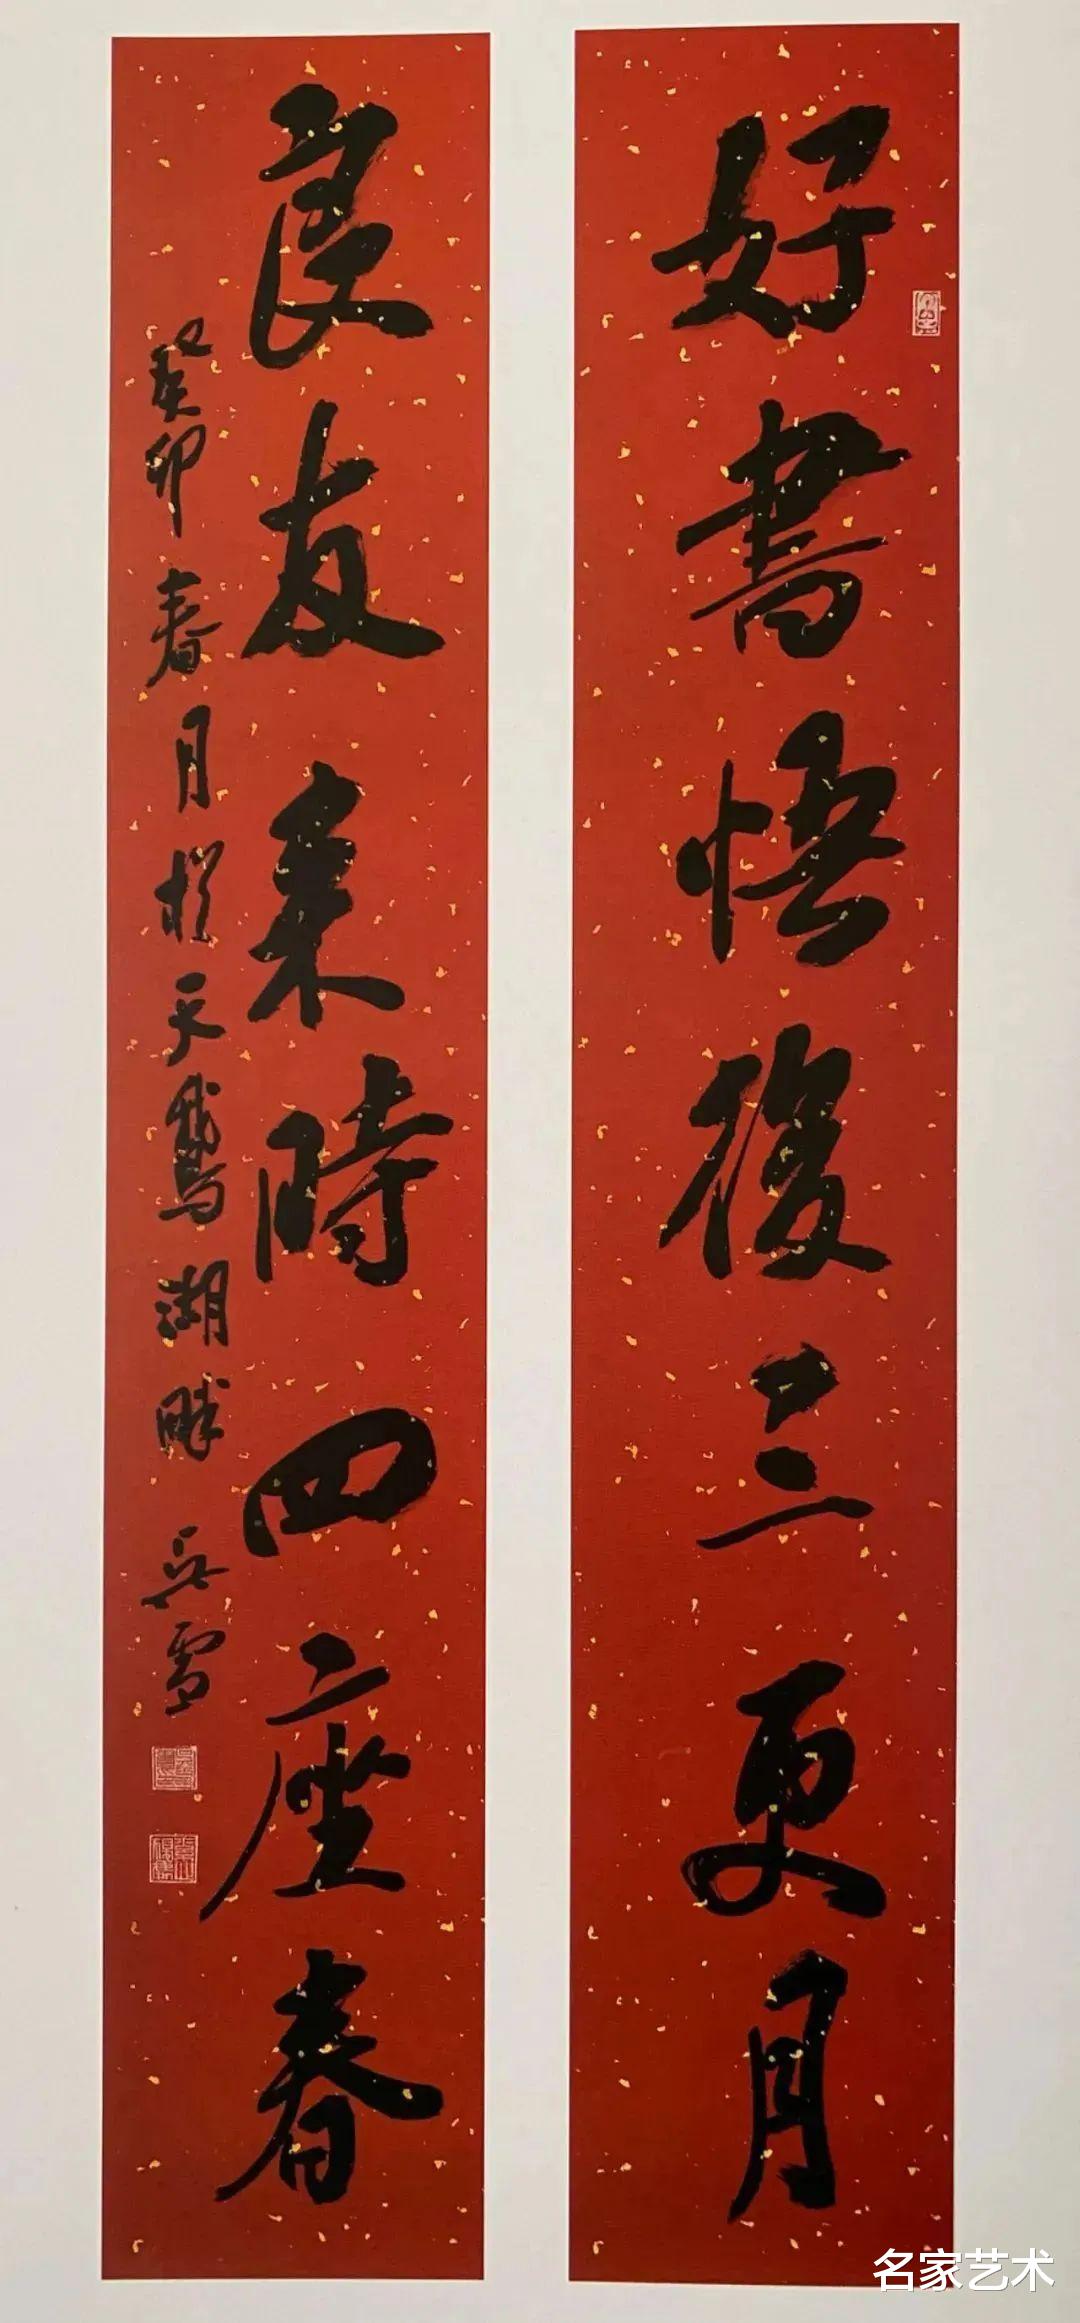 好書悟後三更月
良友來時四座春
癸卯春月於天鵝湖畔吳雪
名家艺术